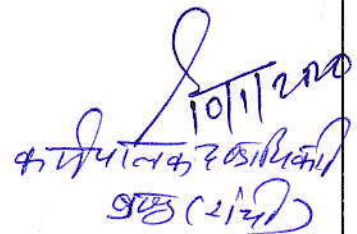 10/1/2020
कार्यपालक दण्डाधिकारी
(रांची)